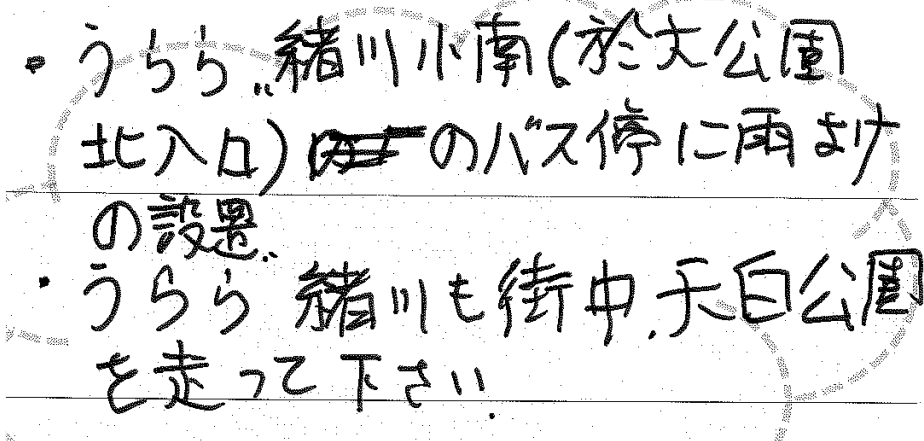 ・うらら、緒川小南(於大公園
北入口)のバス停に雨よけ
の設置.
・うらら 緒川も街中、天白公園
を走って下さい.